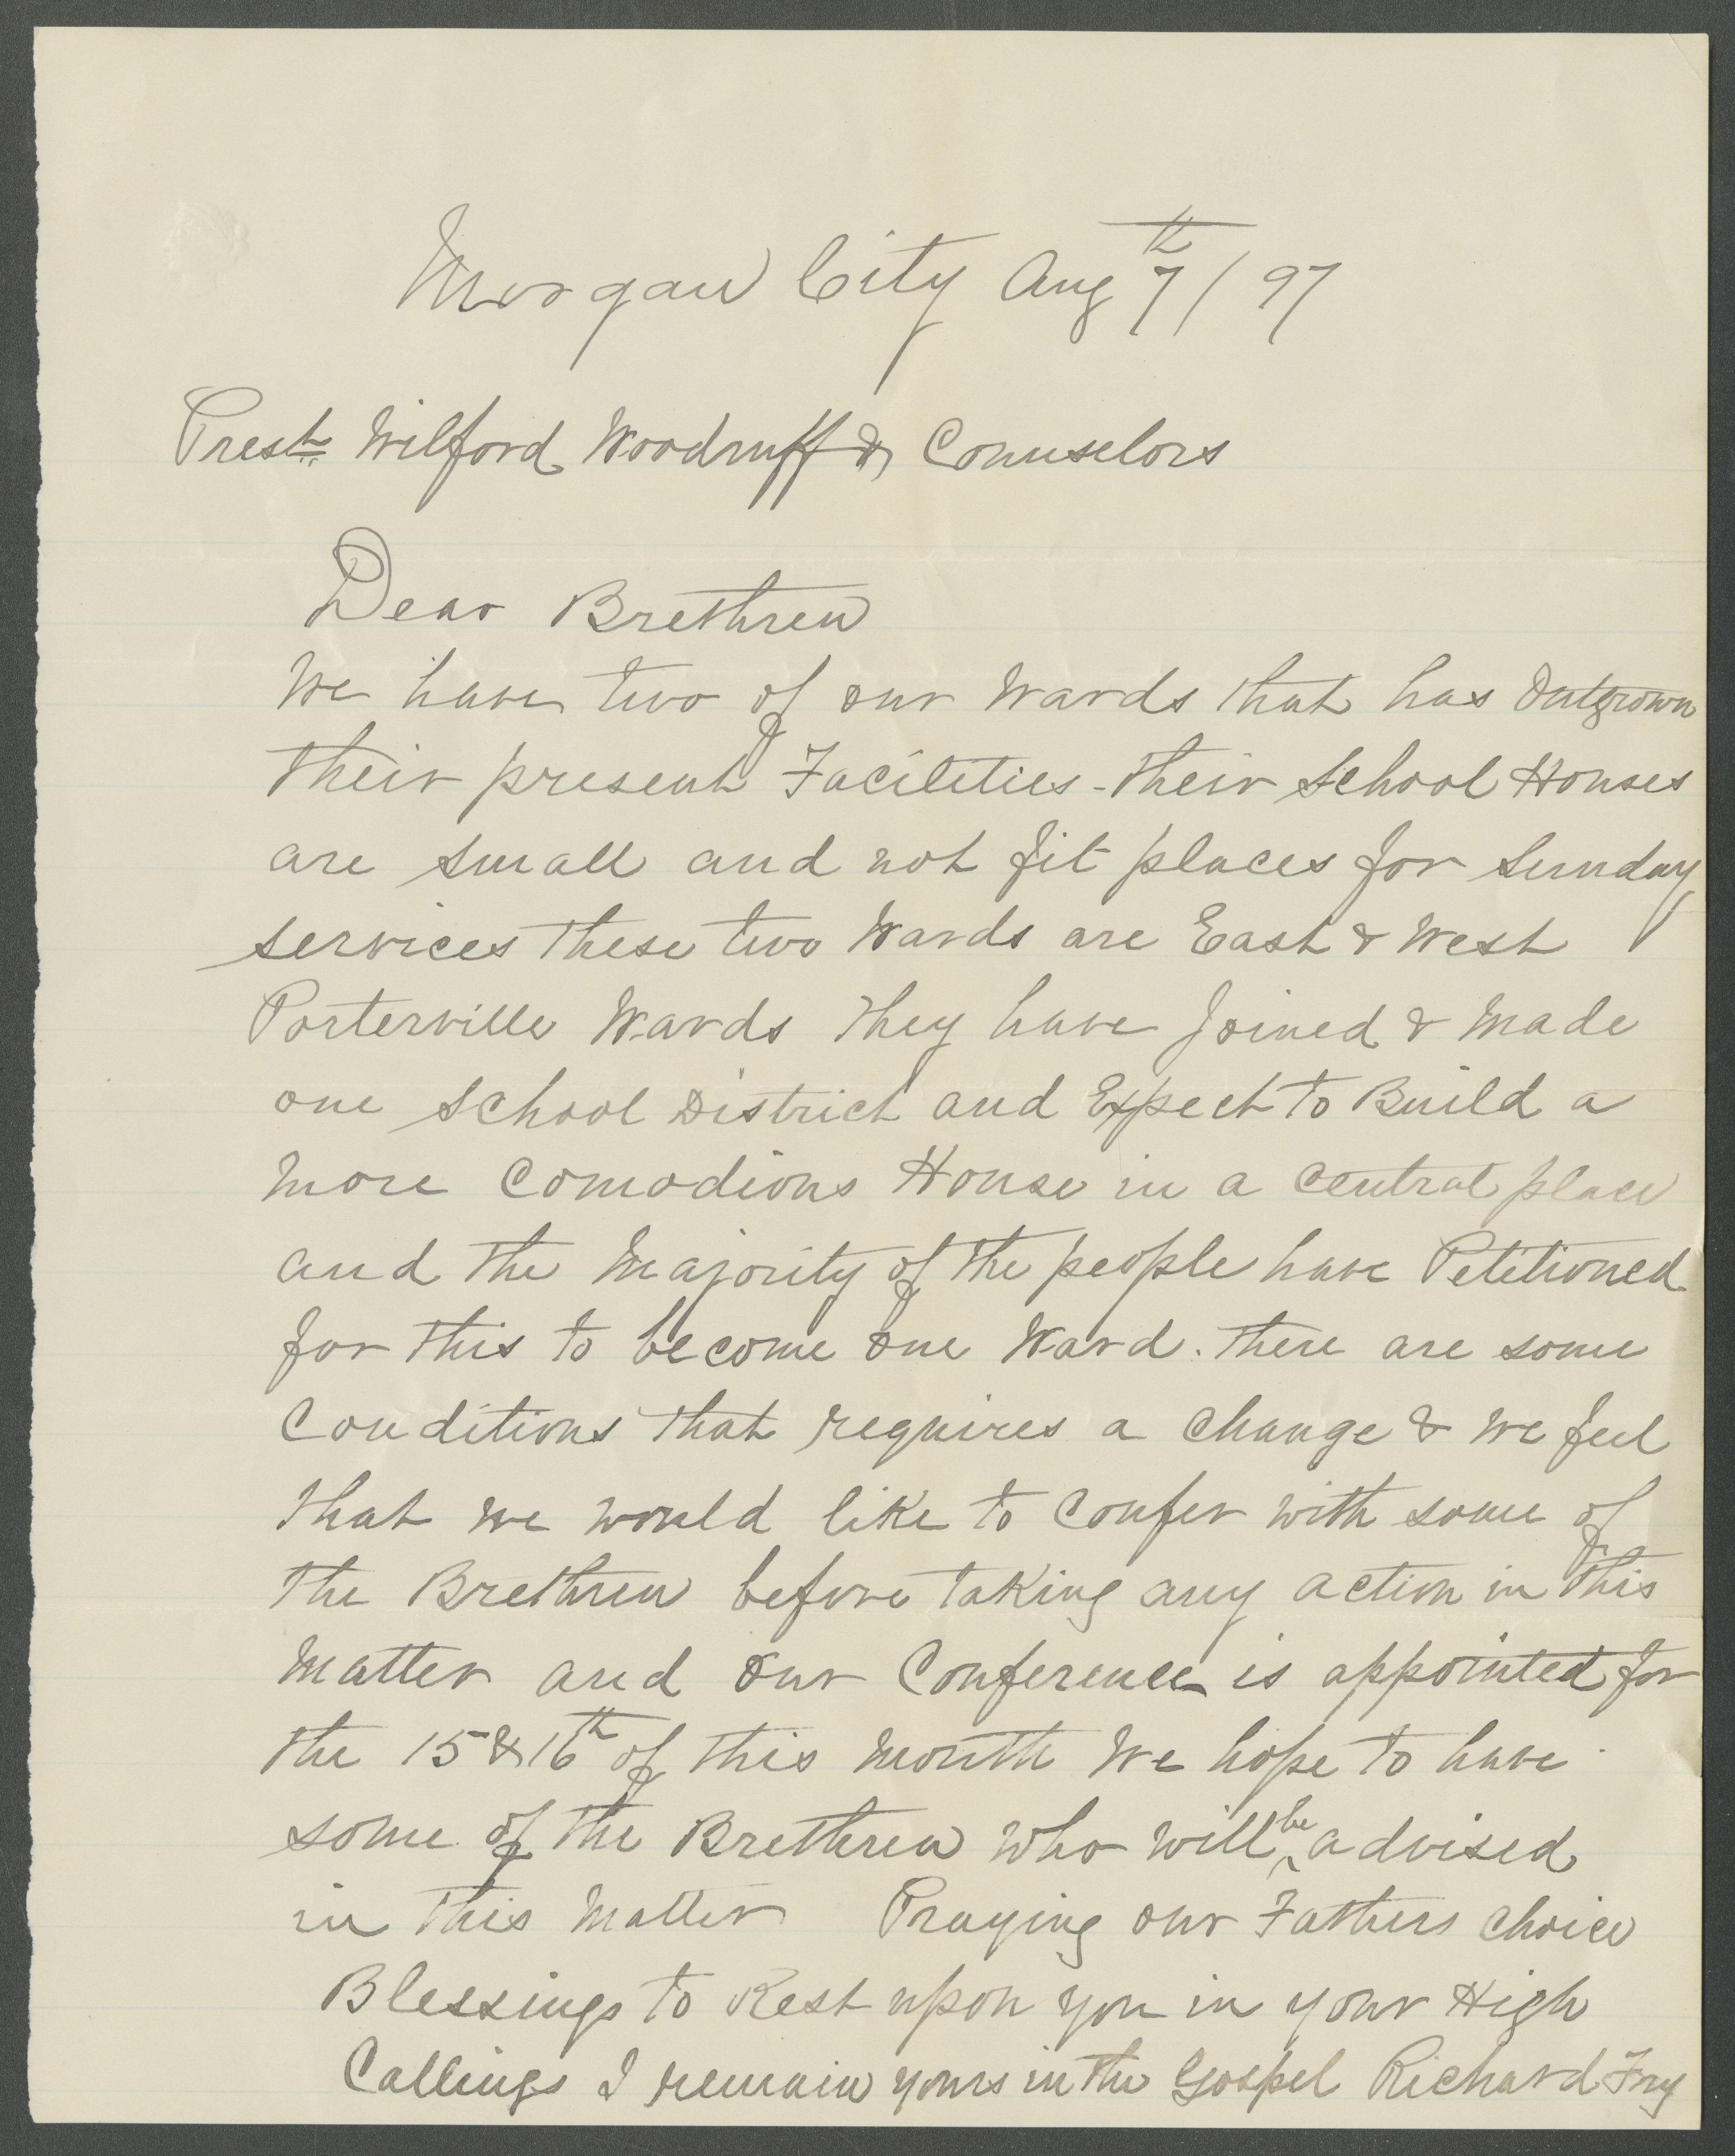 Morgan City Aug 7th / 97
Prest Wilford Woodruff & Counselors
Dear Brethren
We have two of our Wards that has Outgrown
their present Facilities - their School Houses
are small and not fit places for Sunday
services These two Wards are East & West
Porterville Wards They have Joined & made
one School District and Expect to Build a
more Comodious House in a Central place
and the Majority of the people have Petitioned
for this to become One Ward. there are some
Conditions that requires a Change & we feel
that we would like to Confer with some of
the Brethren before taking any action in this
Matter and Our Conference is appointed for
the 15 & 16th of this month We hope to have
some of the Brethren who will be advised
in this Matter Praying our Fathers Choice
Blessings to Rest upon you in your High
Callings I remain yours in the Gospel Richard Fry